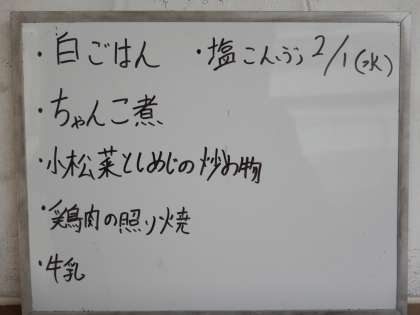 ・白ごはん ・塩こんぶ 2/1(水)
・ちゃんこ煮
・小松菜としめじの炒め物
・鶏肉の照り焼
・牛乳